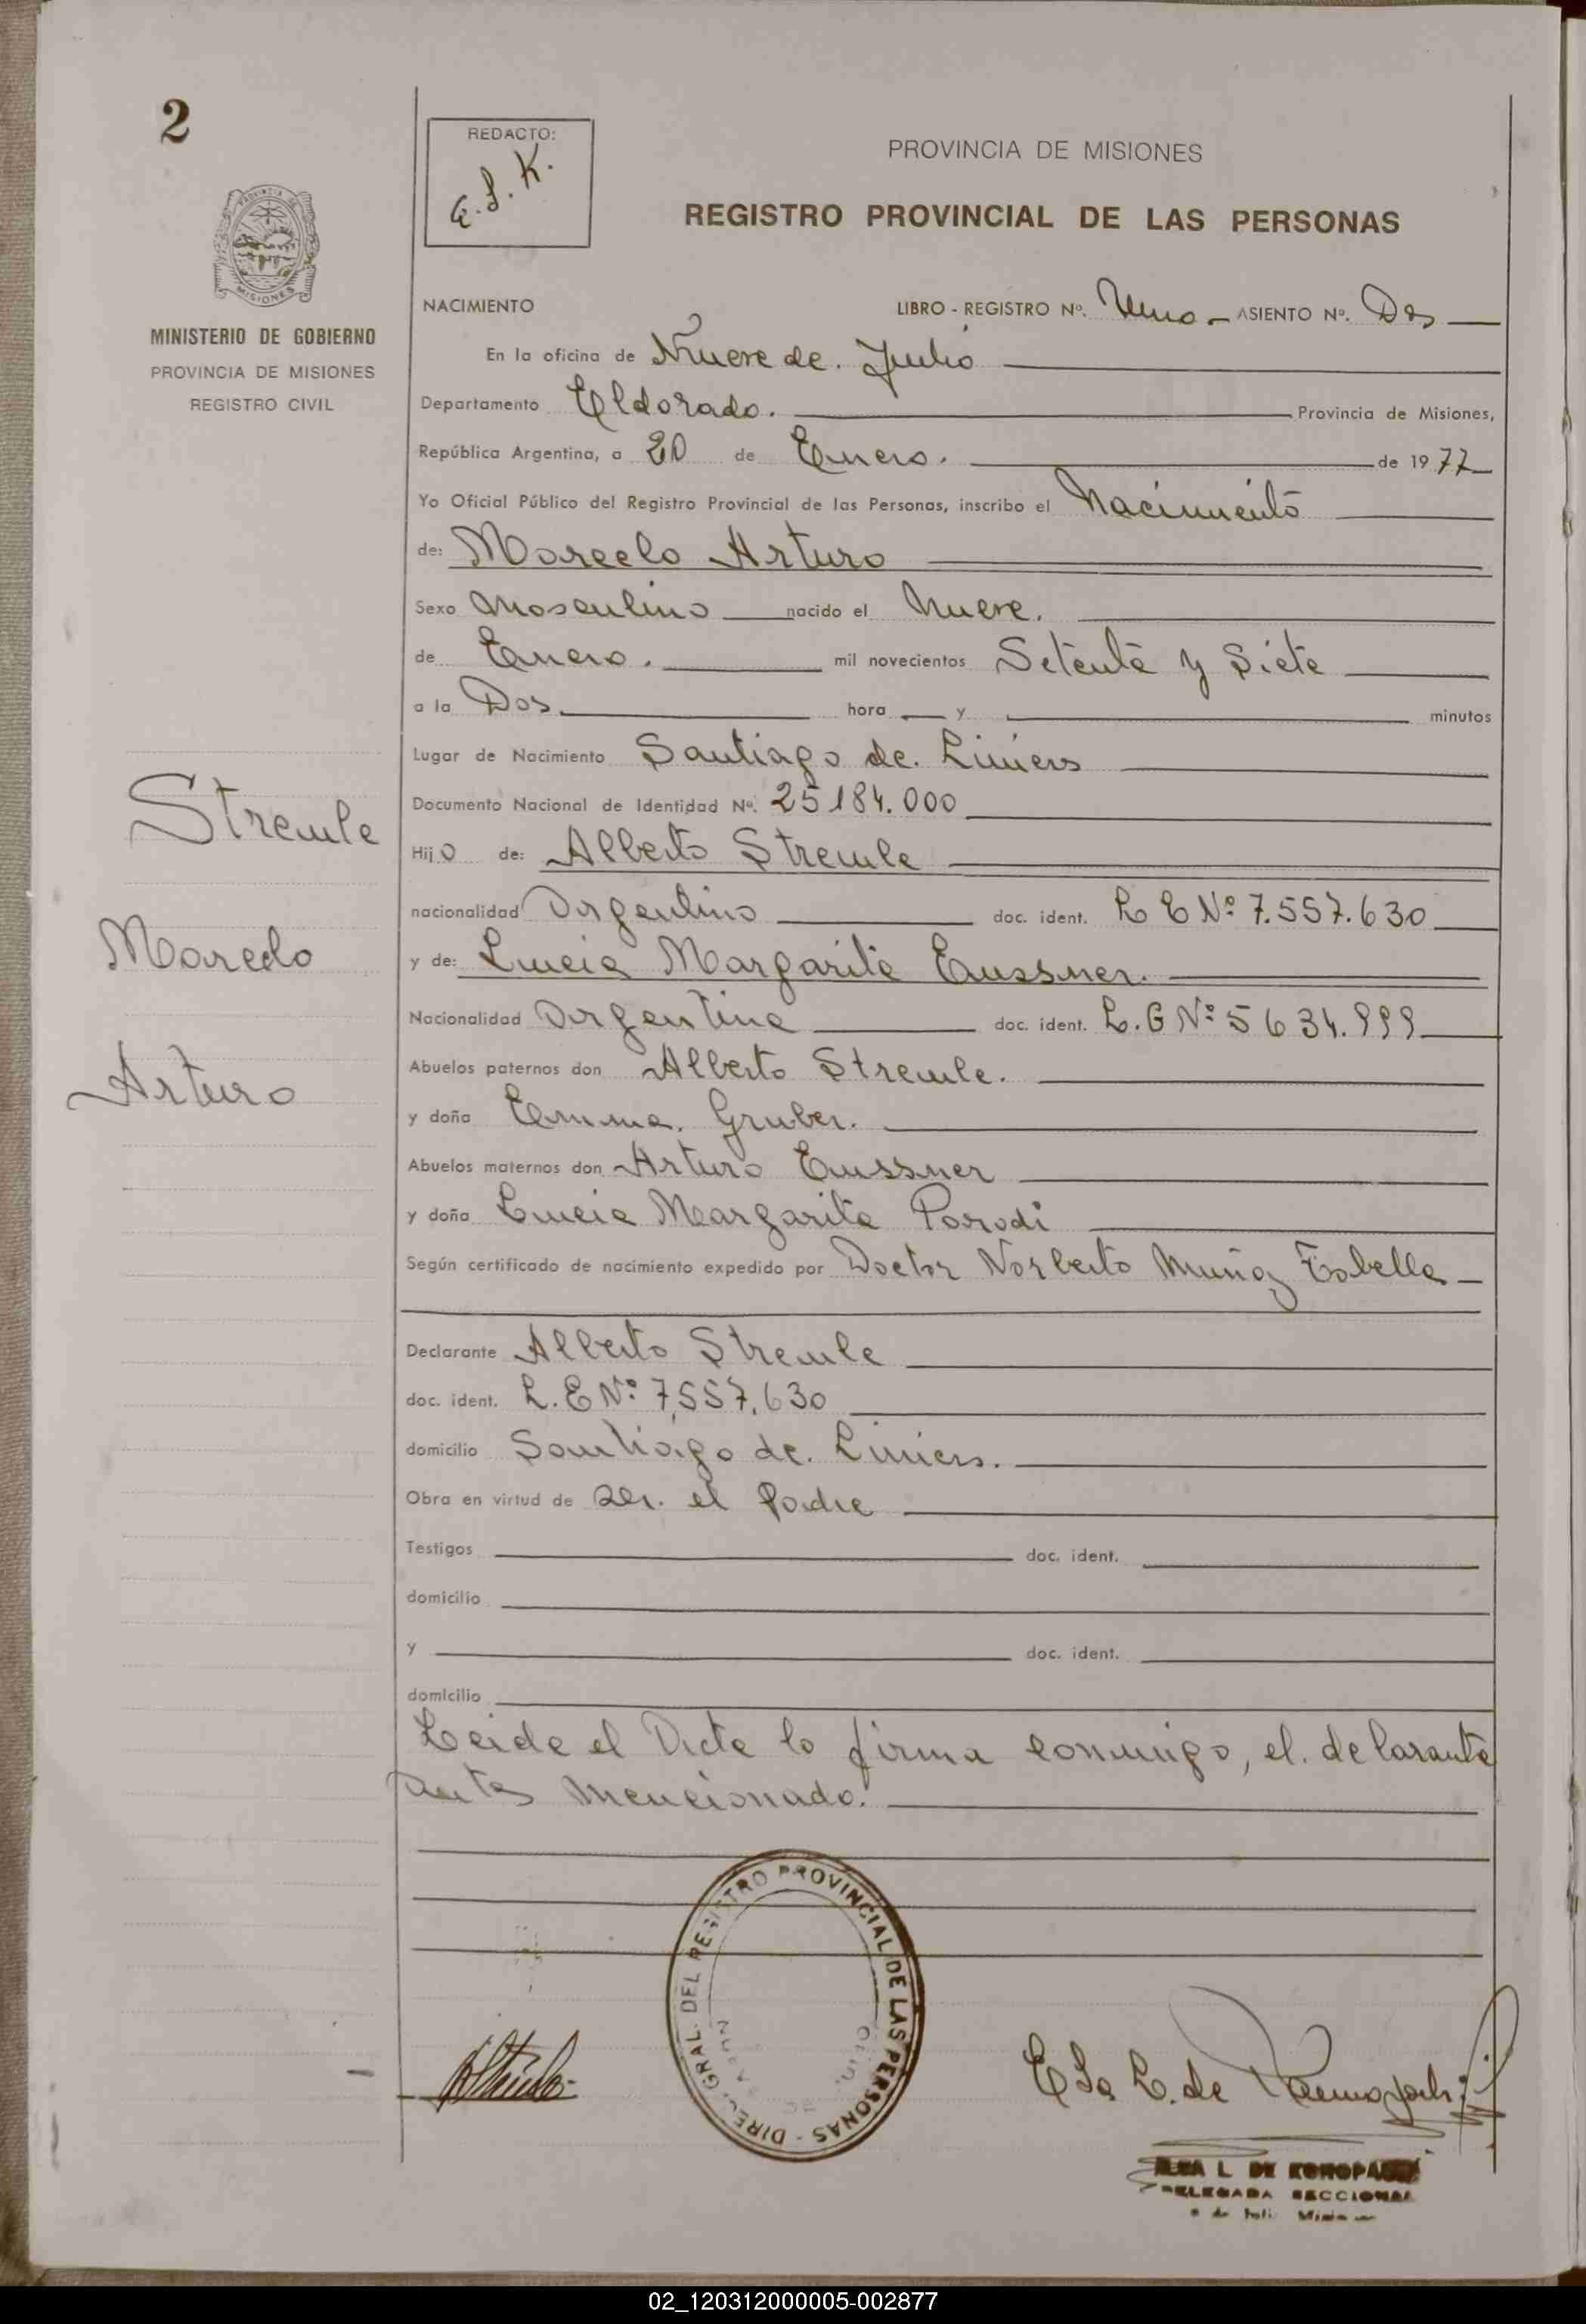 2
REDACTO:
E.L.K.
PROVINCIA DE MISIONES
REGISTRO PROVINCIAL DE LAS PERSONAS
PROVINCIA DE
MISIONES
MINISTERIO DE GOBIERNO
PROVINCIA DE MISIONES
REGISTRO CIVIL
NACIMIENTO LIBRO - REGISTRO Nº. Uno ASIENTO Nº. Dos
En la oficina de Nueve de. Julio
Departamento Eldorado. Provincia de Misiones,
República Argentina, a 20 de Enero. de 1977
Yo Oficial Público del Registro Provincial de las Personas, inscribo el Nacimiento
de: Marcelo Arturo
Sexo Masculino nacido el Nueve.
de Enero. mil novecientos Setenta y Siete
a la Dos hora y minutos
Lugar de Nacimiento Santiago de. Liniers
Documento Nacional de Identidad Nº. 25184.000
Stremle
Hijo de: Alberto Stremle
nacionalidad Argentino doc. ident. L E Nº 7.557.630
Marcelo
y de: Lucia Margarita Eussner.
Nacionalidad Argentina doc. ident. L.C Nº 5634.999
Arturo
Abuelos paternos don Alberto Stremle.
y doña Emma. Gruber.
Abuelos maternos don Arturo Eussner
y doña Lucia Margarita Parodi
Según certificado de nacimiento expedido por Doctor Norberto Muñoz
Declarante Alberto Stremle
doc. ident. L.E Nº 7,557,630
domicilio Santiago de. Liniers.
Obra en virtud de Ser. el Padre
Testigos doc. ident.
domicilio
y doc. ident.
domicilio
Leida el Acta la firma conmigo, el. delarante
antes mencionado.
DIREC. GRAL. DEL REGISTRO PROVINCIAL DE LAS PERSONAS
L. de
L DE
DELEGADA SECCIONAL
02_120312000005-002877